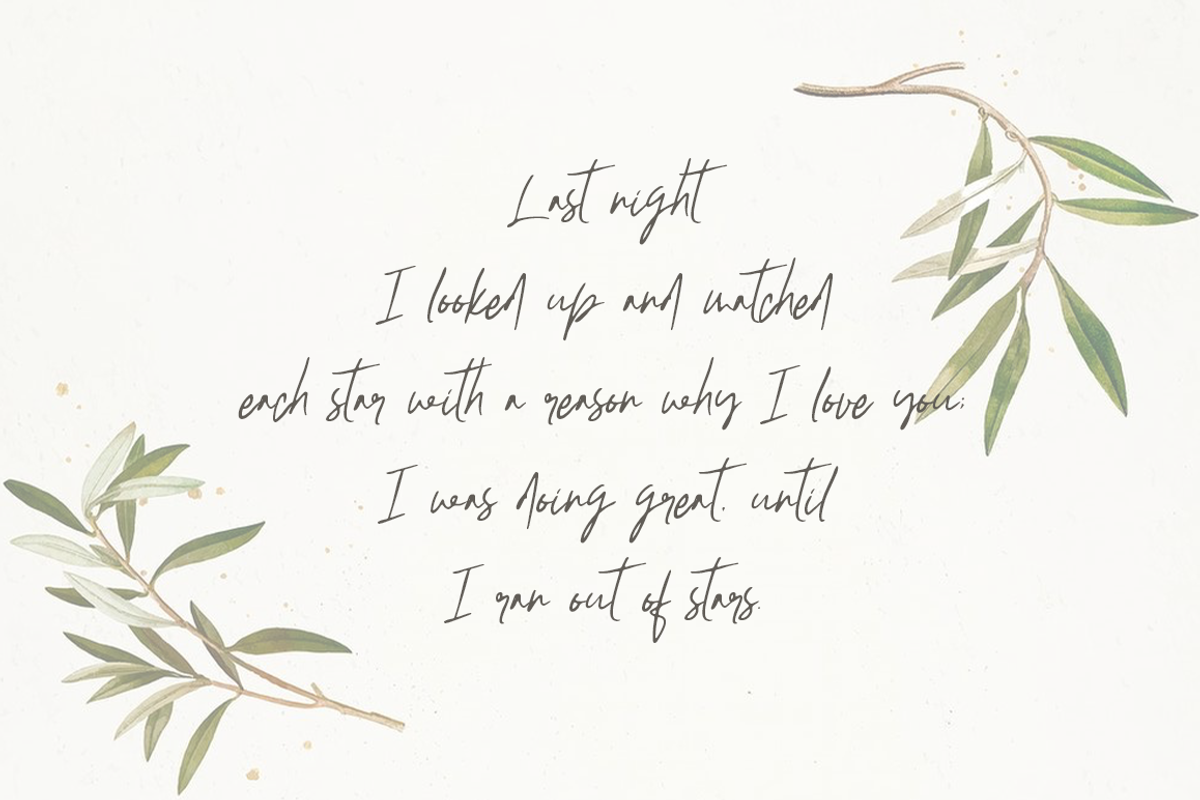 Last night
I looked up and watched
each star with a reason why I love you;
I was doing great. until
I ran out of stars.